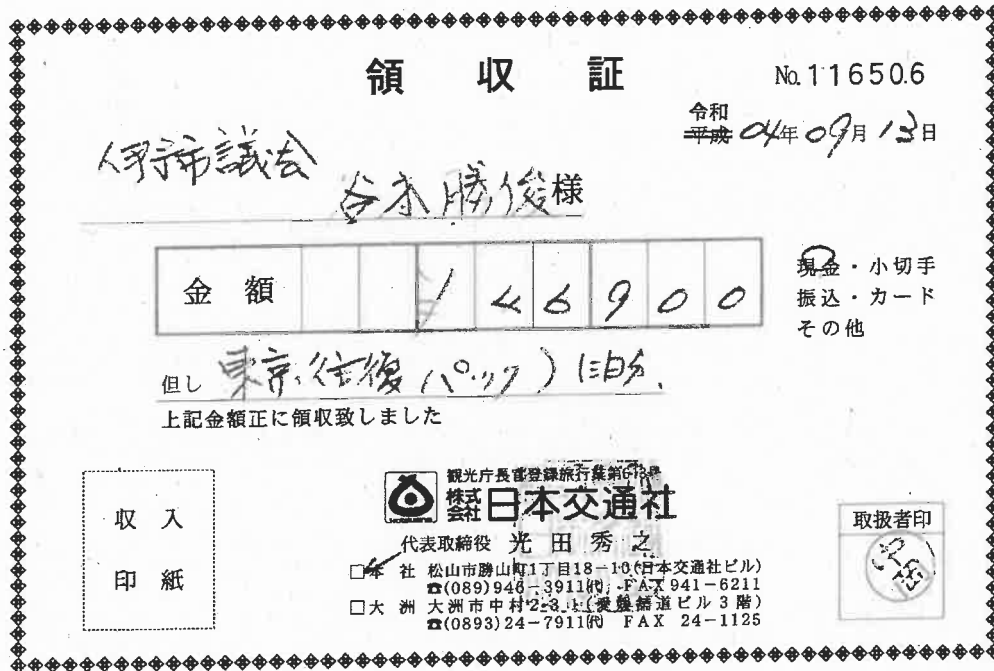 領収証
No.116506
令和
平成 04年09月13日
伊予市議会
谷本勝俊様
金額 146900
現金・小切手
振込・カード
その他
但し 東京往復(パック)1泊分.
上記金額正に領収致しました
収入
印紙
観光庁長官登録旅行業第613号
株式会社 日本交通社
代表取締役 光田秀之
□本社 松山市勝山町1丁目18-10(日本交通社ビル)
☎(089)946-3911㈹ FAX 941-6211
□大洲 大洲市中村2-3-1(愛媛鐵道ビル3階)
☎(0893)24-7911㈹ FAX 24-1125
取扱者印